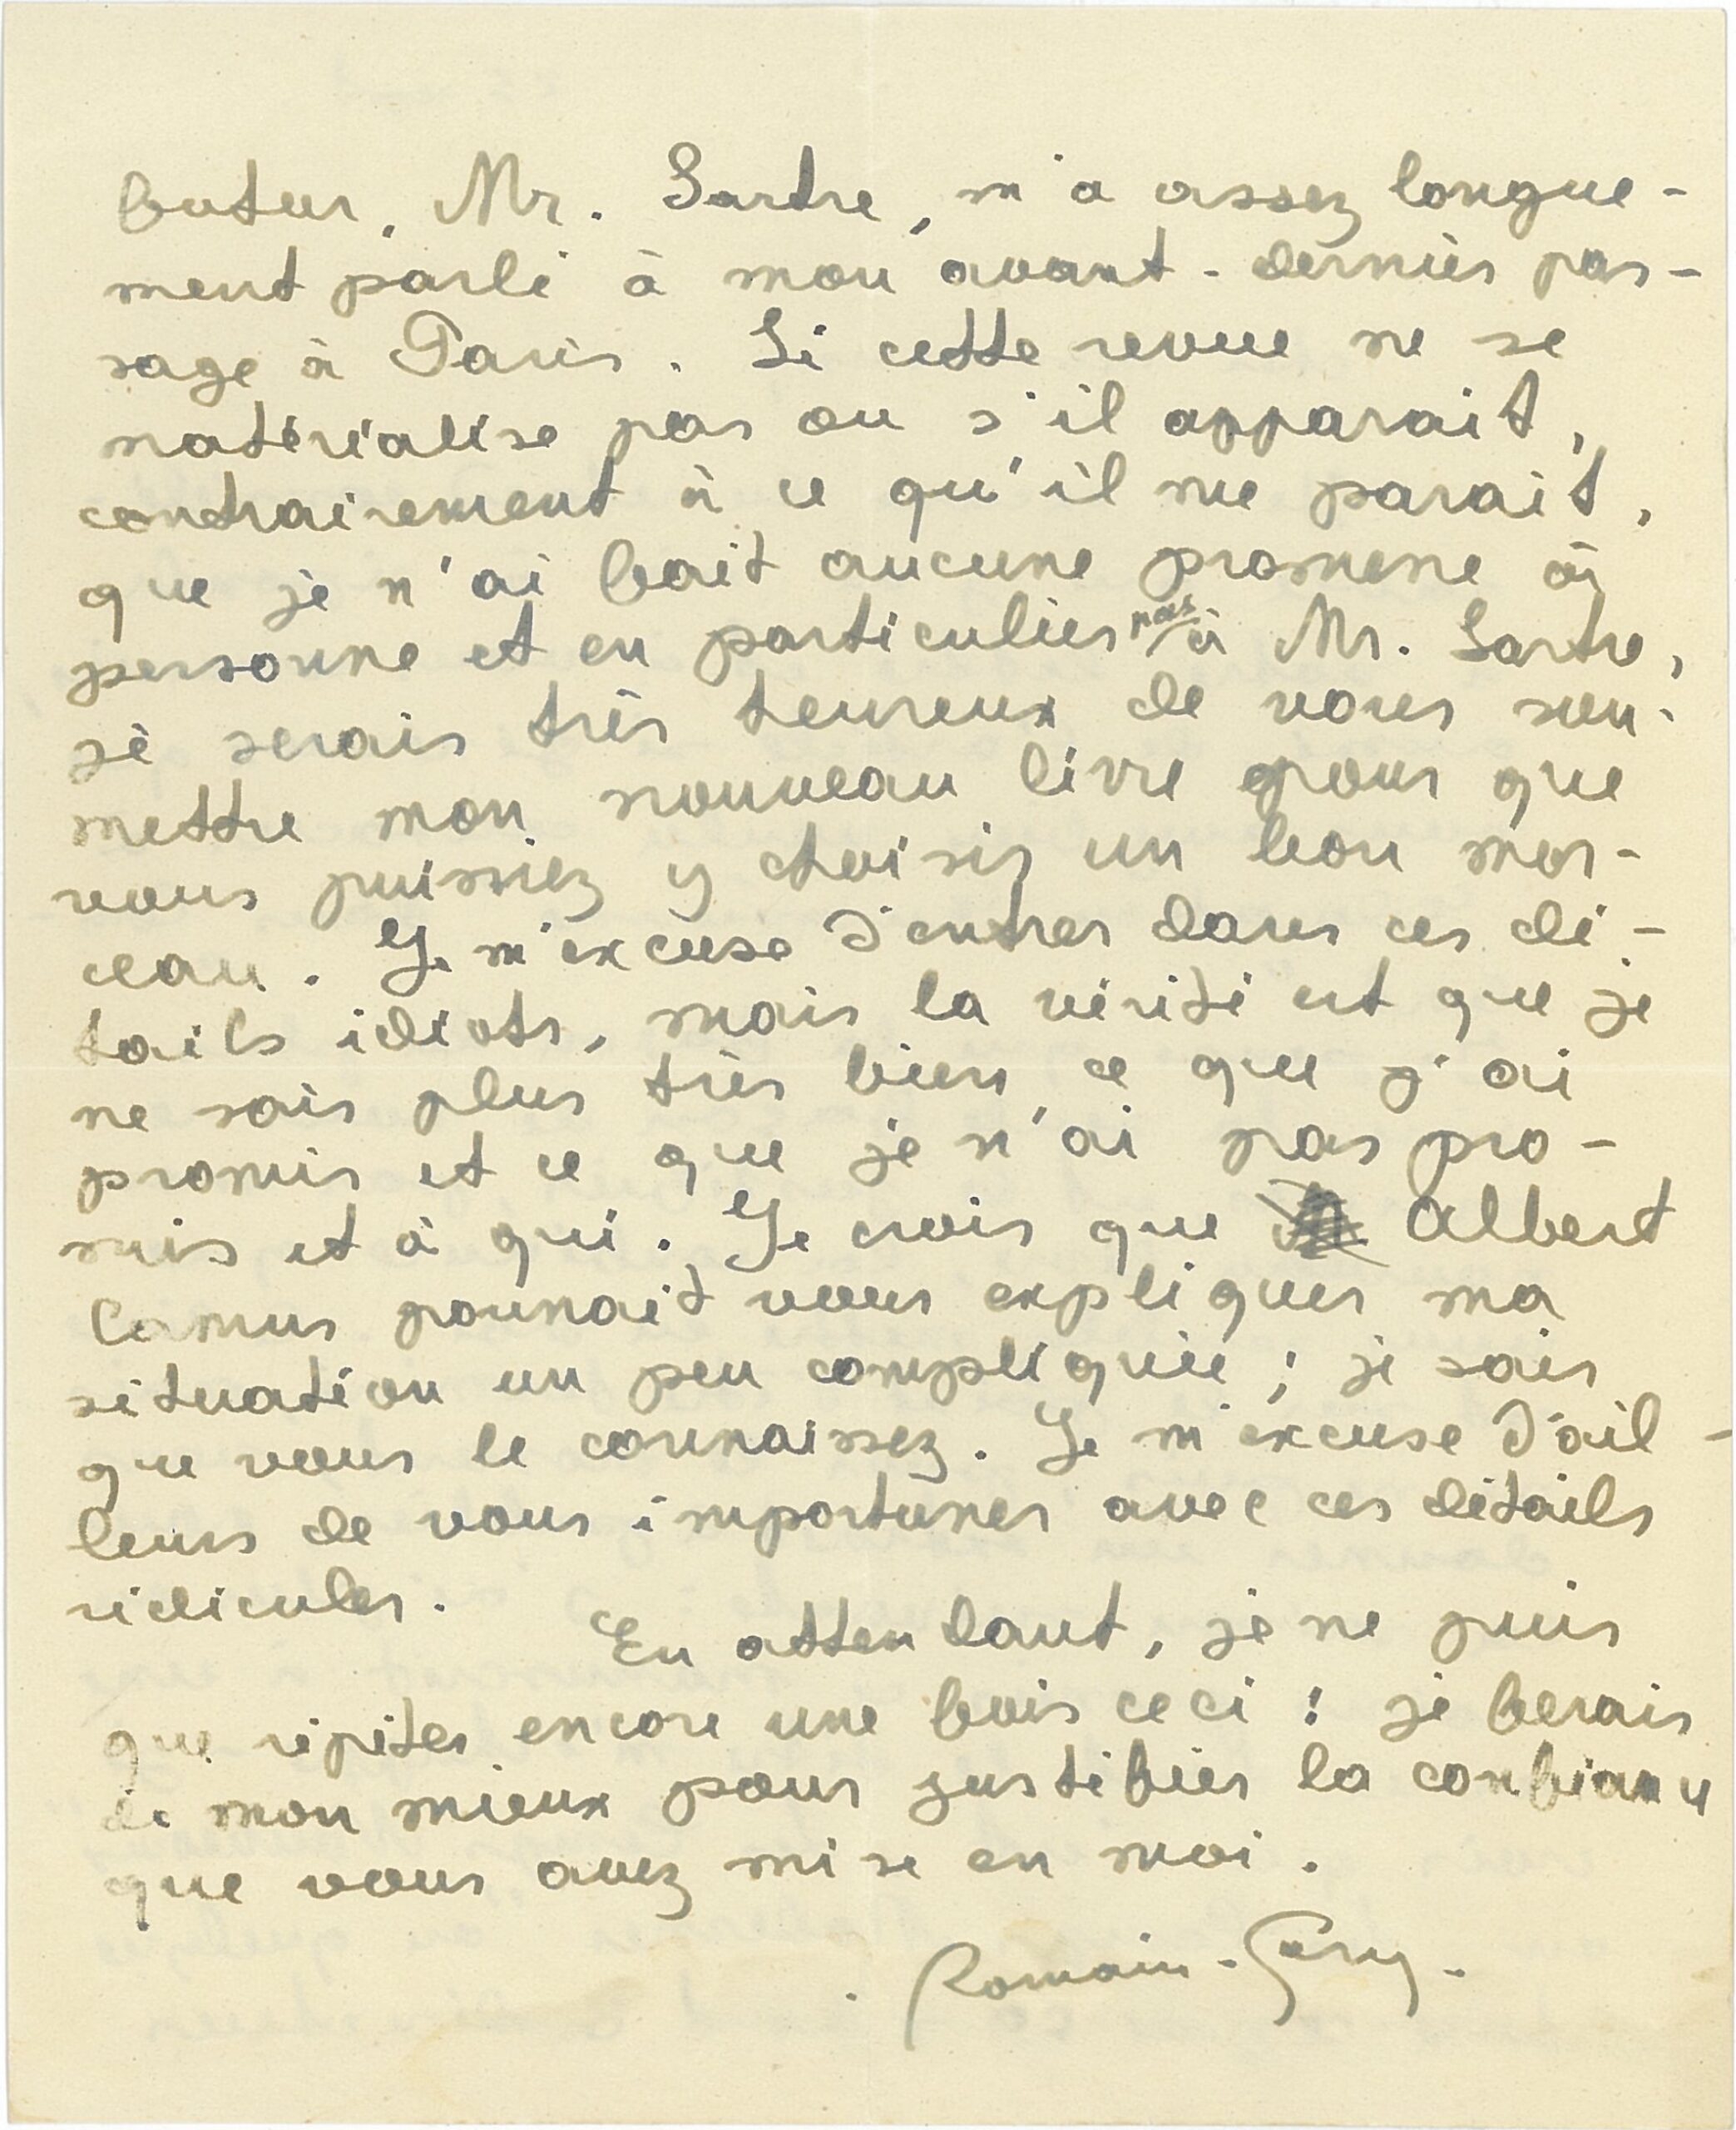 futur, Mr. Sartre, m'a assez longue-
ment parlé à mon avant-dernier pas-
sage à Paris. Si cette revue ne se
matérialise pas ou s'il apparait,
contrairement à ce qu'il me parait,
que je n'ai fait aucune promesse à
personne et en particulier pas à Mr. Sartre,
je serais très heureux de vous sou-
mettre mon nouveau livre pour que
vous puissiez y choisir un bon mor-
ceau. Je m'excuse d'entrer dans ces dé-
tails idiots, mais la vérité est que je
ne sais plus très bien ce que j'ai
promis et ce que je n'ai pas pro-
mis et à qui. Je crois que Albert
Camus pourrait vous expliquer ma
situation un peu compliquée; je sais
que vous le connaissez. Je m'excuse d'ail-
leurs de vous importuner avec ces détails
ridicules.
En attendant, je ne puis
que répéter encore une fois ceci : je ferais
de mon mieux pour justifier la confiance
que vous avez mise en moi.
Romain-Gary.